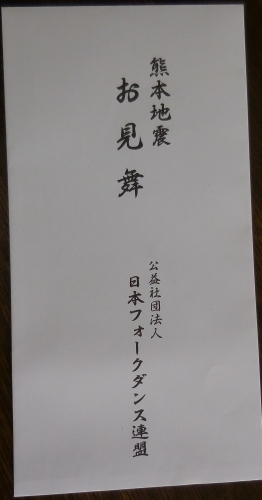 熊本地震
お見舞
公益社団法人
日本フォークダンス連盟